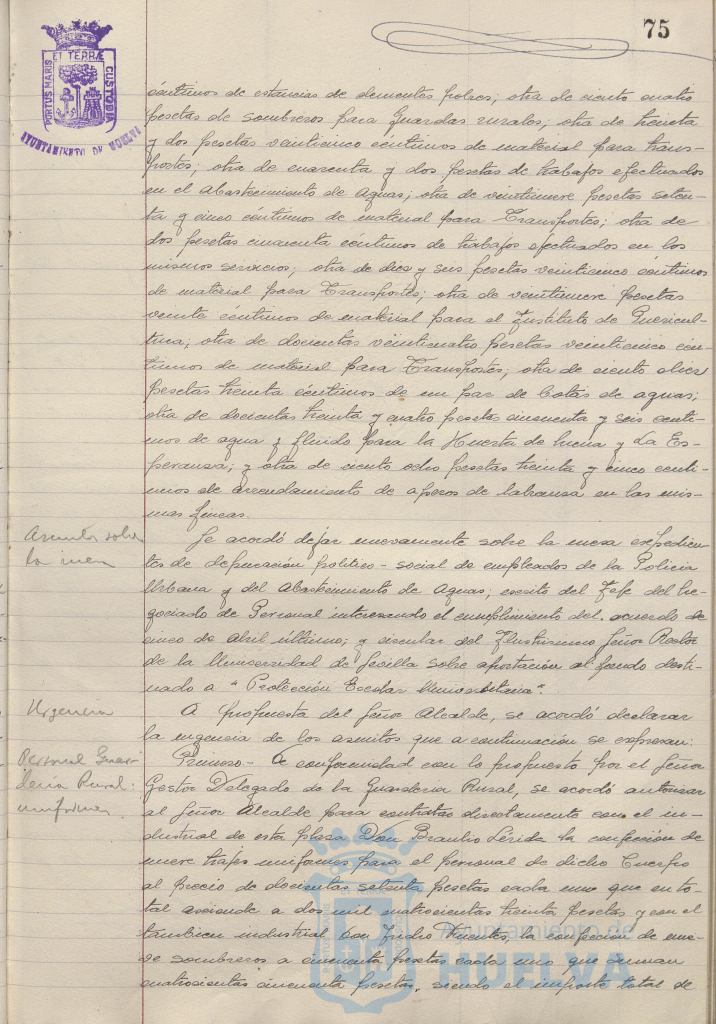 75
PORTUS MARIS ET TERRÆ CUSTODIA
AYUNTAMIENTO DE HUELVA
céntimos de estancias de dementes pobres; otra de ciento cuatro
pesetas de sombreros para Guardas rurales; otra de treinta
y dos pesetas veinticinco céntimos de material para trans-
portes; otra de cuarenta y dos pesetas de trabajos efectuados
en el Abastecimiento de Aguas; otra de veintinueve pesetas seten-
ta y cinco céntimos de material para Transportes; otra de
dos pesetas cuarenta céntimos de trabajos efectuados en los
mismos servicios; otra de diez y seis pesetas veinticinco céntimos
de material para Transportes; otra de veintinueve pesetas
veinte céntimos de material para el Instituto de Puericul-
tura; otra de doscientas veinticuatro pesetas veinticinco cén-
timos de material para Transportes; otra de ciento diez
pesetas treinta céntimos de un par de botas de aguas;
otra de doscientas treinta y cuatro pesetas cincuenta y seis cénti-
mos de agua y fluido para la Huerta de Mena y La Es-
peranza; y otra de ciento ocho pesetas treinta y cinco cénti-
mos de arrendamiento de aperos de labranza en las mis-
mas fincas.
Asuntos sobre
la mesa
Se acordó dejar nuevamente sobre la mesa expedien-
tes de depuración político-social de empleados de la Policía
Urbana y del Abastecimiento de Aguas; escrito del Jefe del Ne-
gociado de Personal interesando el cumplimiento del acuerdo de
cinco de Abril último; y circular del Ilustrísimo Señor Rector
de la Universidad de Sevilla sobre aportación al fondo desti-
nado a "Protección Escolar Universitaria".
Urgencia
A propuesta del Señor Alcalde, se acordó declarar
la urgencia de los asuntos que a continuación se expresan:
Personal Guar-
dería Rural:
uniformes.
Primero- De conformidad con lo propuesto por el Señor
Gestor Delegado de la Guardería Rural, se acordó autorizar
al Señor Alcalde para contratar directamente con el in-
dustrial de esta plaza Don Braulio Lérida la confección de
nueve trajes uniformes para el personal de dicho Cuerpo
al precio de doscientas setenta pesetas cada uno que en to-
tal asciende a dos mil cuatrocientas treinta pesetas y con el
también industrial Don Isidro Fuentes, la confección de nue-
ve sombreros a cincuenta pesetas cada uno que suman
cuatrocientas cincuenta pesetas, siendo el importe total de
Ayuntamiento de
HUELVA